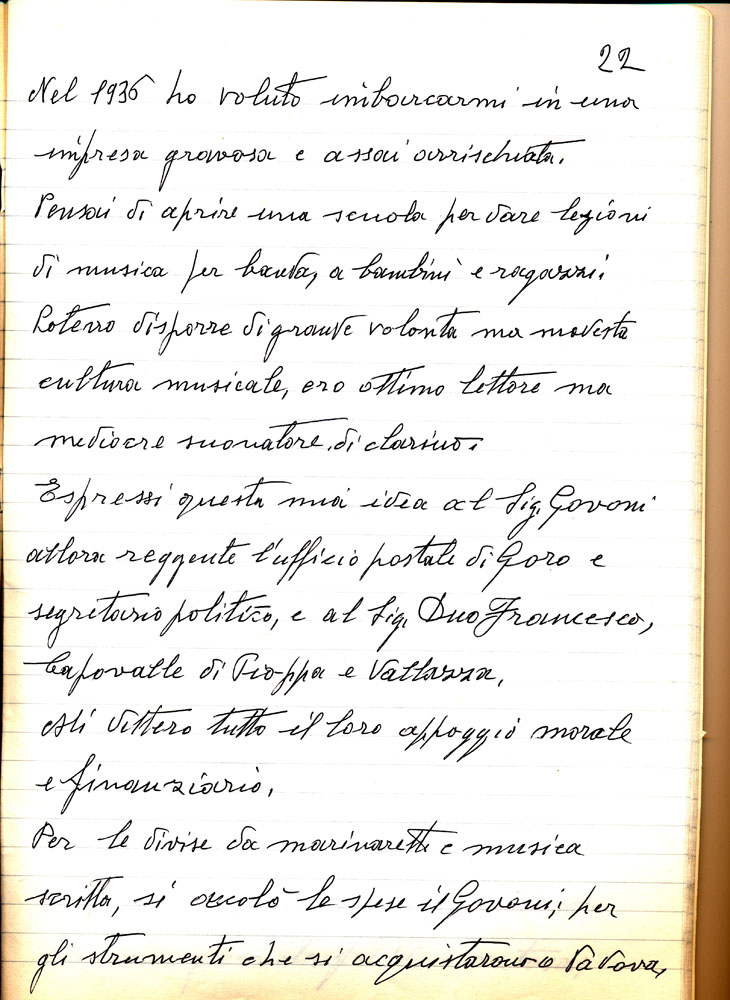 22
Nel 1936 ho voluto imbarcarmi in una
impresa gravosa e assai arrischiata.
Pensai di aprire una scuola per dare lezioni
di musica per banda, a bambini e ragazzi.
Potevo disporre di grande volontà ma modesta
cultura musicale, ero ottimo lettore ma
mediocre suonatore di clarino.
Espressi questa mia idea al Sig. Govoni
allora reggente l'ufficio postale di Goro e
segretario politico, e al Sig. Duo Francesco,
Capovalle di Pioppa e Vallazza,
Mi dettero tutto il loro appoggio morale
e finanziario.
Per le divise da marinaretti e musica
scritta, si accolò le spese il Govoni; per
gli strumenti che si acquistarono a Padova,